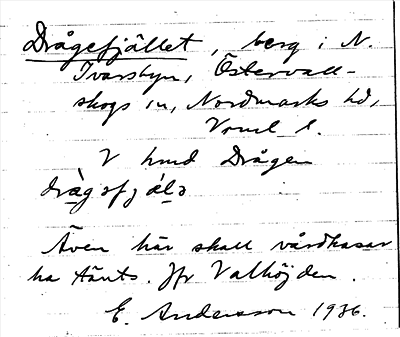 Drågefjället, berg i N.
Ivarsbyn, Östervall-
skogs sn, Nordmarks hd,
Vrml. l.
V hmd Drågen
dràgəfjälə
Även här skall vårdkasar
ha tänts. Jfr Valhöjden.
E. Andersson 1936.